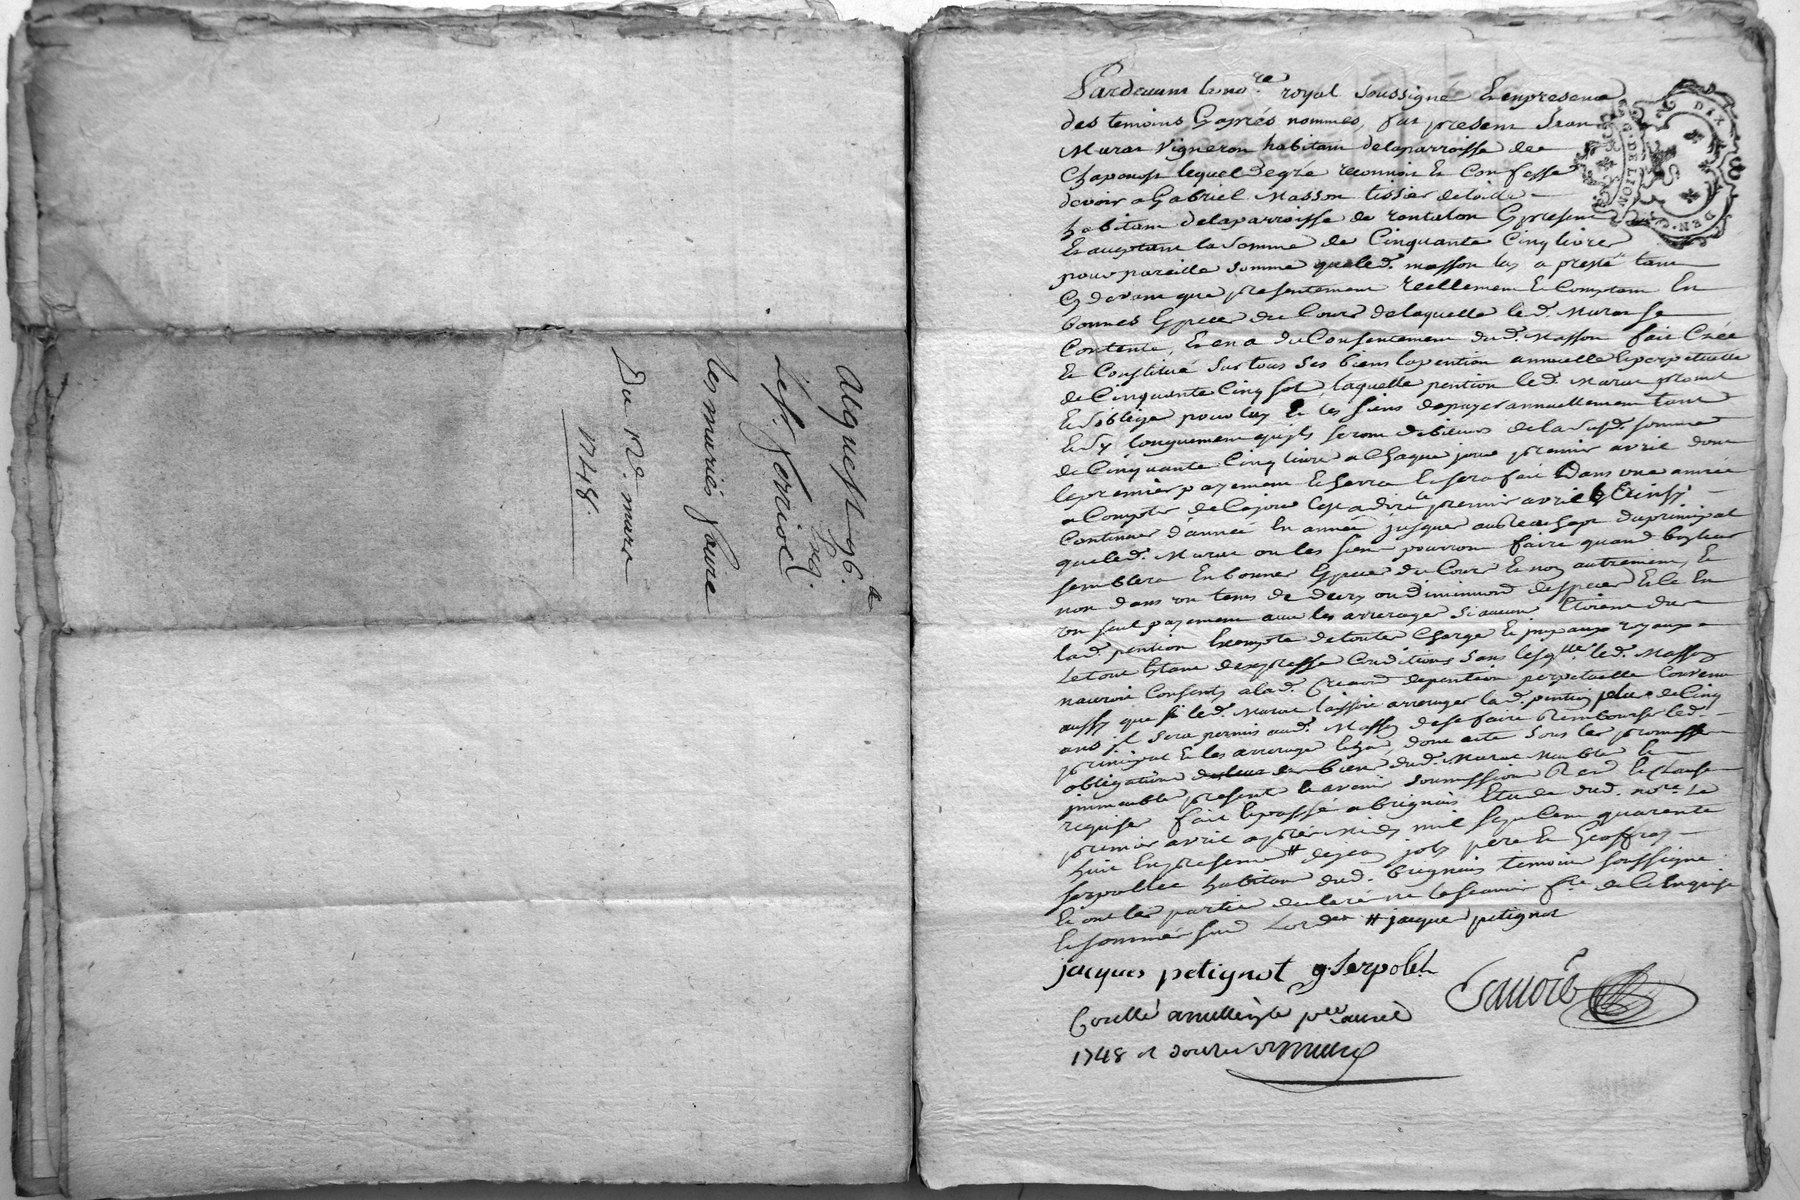 alquest 96.ᵃ
Les.ʳ ferriol
les mariés faure
Du 12ᵉ. mars
1748.
Pardevant le noʳᵉ royal soussigné Et en présence
des temoins Cy après nommés, fut present Jean
Murat Vigneron habitant de la parroisse de
Chaponost lequel de gré reconnoit Et Confesse
devoir a Gabriel Masson tissier de toile
habitant de la parroisse de rontalon Cy present
Et acceptant la somme de Cinquante Cinq livres
pour pareille somme que led. masson luy a presté tant
Cy devant que presentement reellement Et Comptant En
bonnes Especes du Cours de laquelle led. Murat se
Contente, Et en a du Consentement dud. Masson fait Créé
Et Constitué sur tous ses biens la pention annuelle Et perpetuelle
de Cinquante Cinq sols, laquelle pention led. Murat promet
Et s'oblige pour luy Et les siens de payer annuellement tant
Et sy longuement qu'ils seront debiteurs de la susd. somme
de Cinquante Cinq livres a Chaque jour premier avril dont
le premier payement Echerra Et sera fait Dans une année
a Compter de Ce jour C'est a dire le premier avril Et Ainsy
Continuer d'année En année jusques au rachapt du principal
que led. Murat ou les siens pourront faire quand bon leur
semblera En bonnes Especes du Cours Et non autrement, Et
non dans un tems de decry ou diminution d'especes Et Ce En
un seul payement avec les arrerages si aucuns Etoient dus
lad. pention Exempte de toutes Charges Et impots royaux
Le tout Etant d'expresse Conditions sans lesqˡˡᵉˢ led. Masson
n'auroit Consenty a lad. Creation de pention perpetuelle Convenu
aussy que si led. Murat laissoit arrerager lad. pention plus de Cinq
ans il sera permis aud. Masson de se faire Rembourser led.
principal Et les arrerages
obligation de biens dud. Murat Meuble Et
immeuble present Et avenir soumission Ren. Et Clause
requises fait Et passé a brignais Etude dud. noʳᵉ Le
premier avril après midy mil sept cent quarente
huit En presence # de jean joly pere Et Geoffray
Serpollet habitan dud. brignais temoins soussigné
Et ont les parties declaré ne le scavoir fᵉ. de Ce Enquise
Et sommés sur Lordce # jacques petignot
jacques petignot g. Serpolet
Sauorée
Conllé a millery le pᵉʳ avril
1748 R douze s.